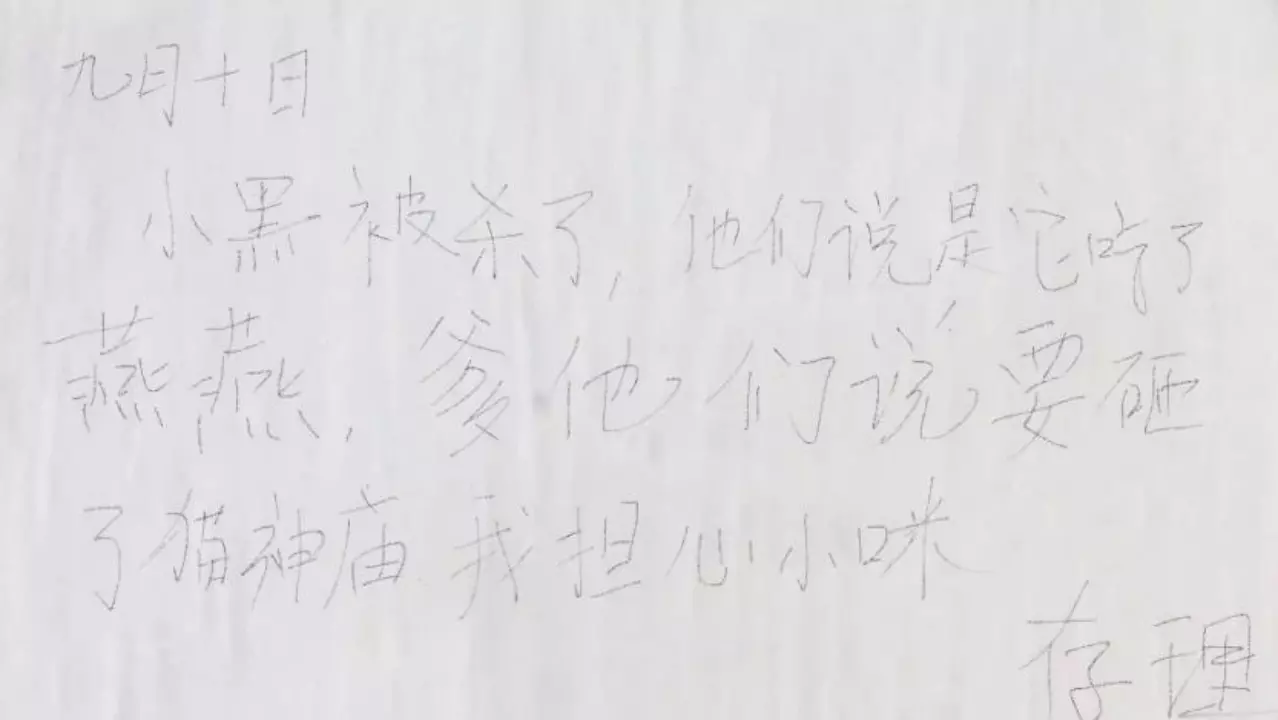 九月十日
小黑被杀了,他们说是它吃了
燕燕,爹他们说要砸
了猫神庙 我担心小咪
存理